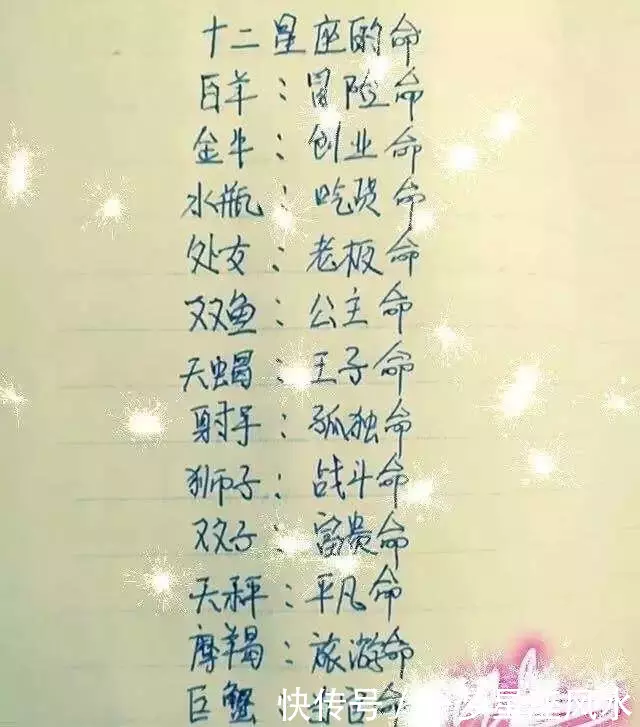 十二星座的命
白羊：冒险命
金牛：创业命
水瓶：吃货命
处女：老板命
双鱼：公主命
天蝎：王子命
射手：孤独命
狮子：战斗命
双子：富贵命
天秤：平凡命
摩羯：旅游命
巨蟹 命
快传号/ 星座风水